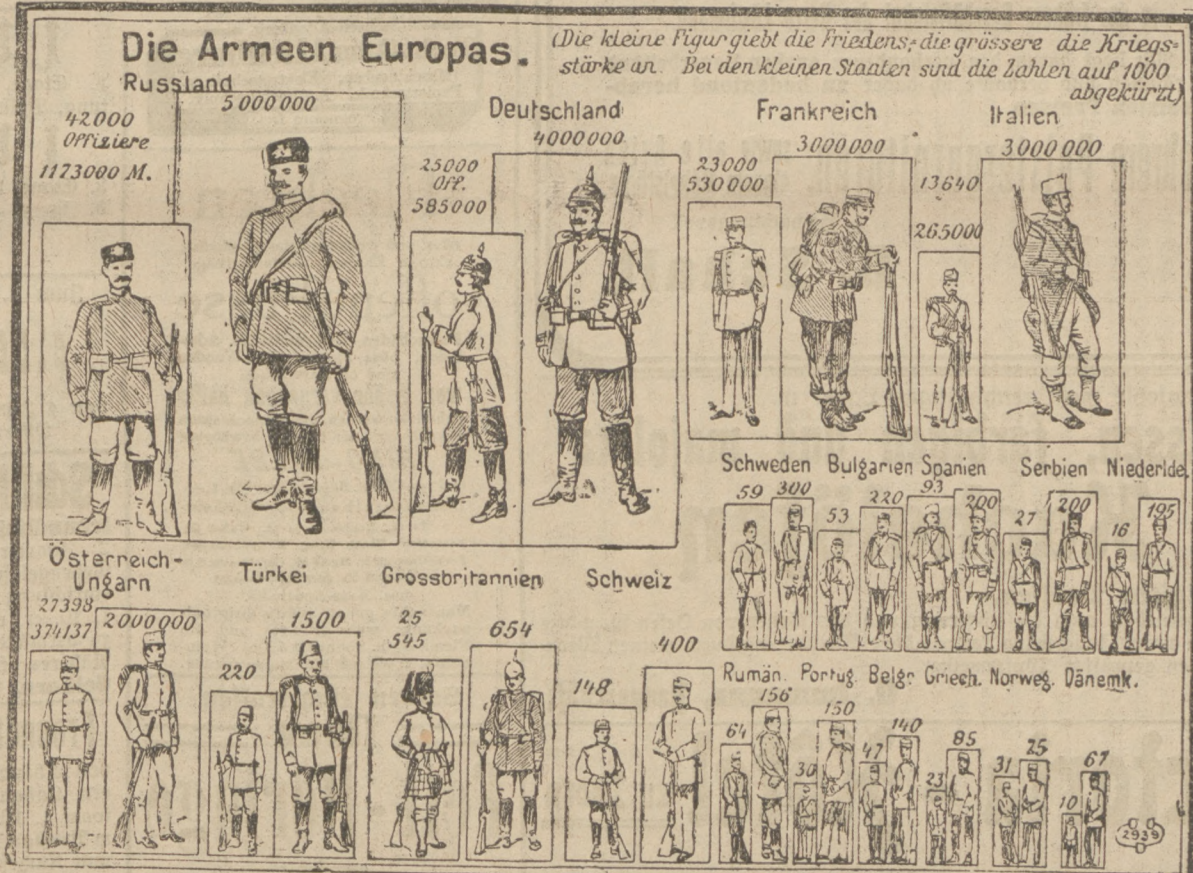 Die Armeen Europas.
(Die kleine Figur giebt die Friedens-, die grössere die Kriegs-
stärke an. Bei den kleinen Staaten sind die Zahlen auf 1000
abgekürzt)
Russland
42000
Offiziere
1173000 M.
5000000
Deutschland
25000
Off.
585000
4000000
Frankreich
23000
530000
3000000
Italien
13640
265000
3000000
Schweden Bulgarien Spanien Serbien Niederlde.
59 300 53 220 93 200 27 200 16 195
Österreich-
Ungarn
27398
374137
2000000
Türkei
220
1500
Grossbritannien
25
545
654
Schweiz
148
400
Rumän. Portug. Belgr. Griech. Norweg. Dänemk.
64 156 30 150 47 140 23 85 31 25 10 67
2939